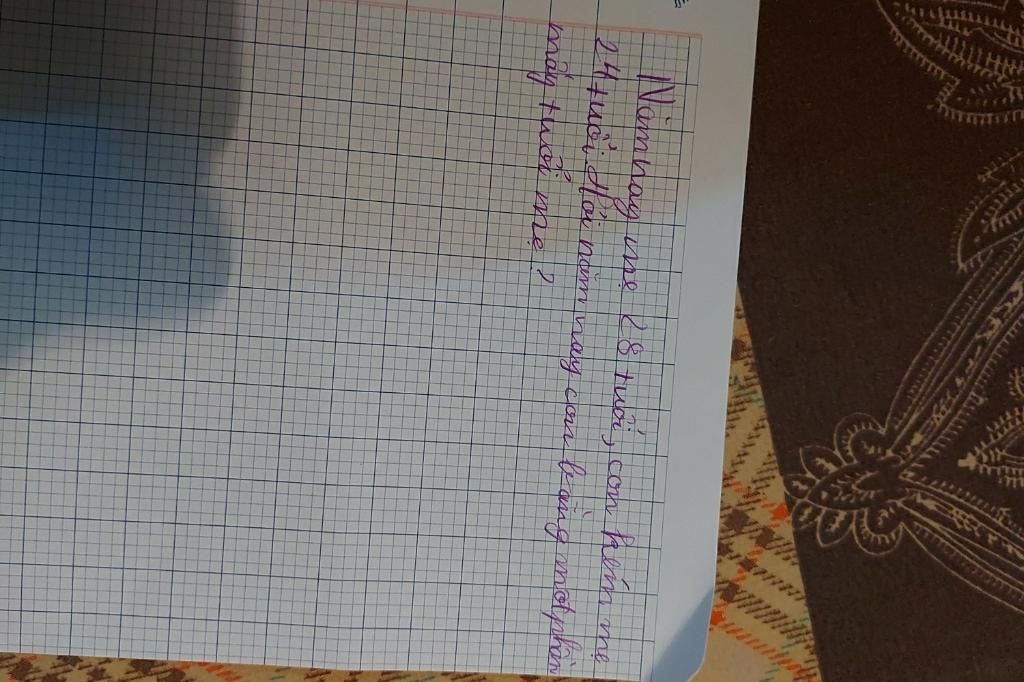 Năm nay mẹ 28 tuổi, con kém mẹ
24 tuổi. Hỏi năm nay con bằng một phần
mấy tuổi mẹ?